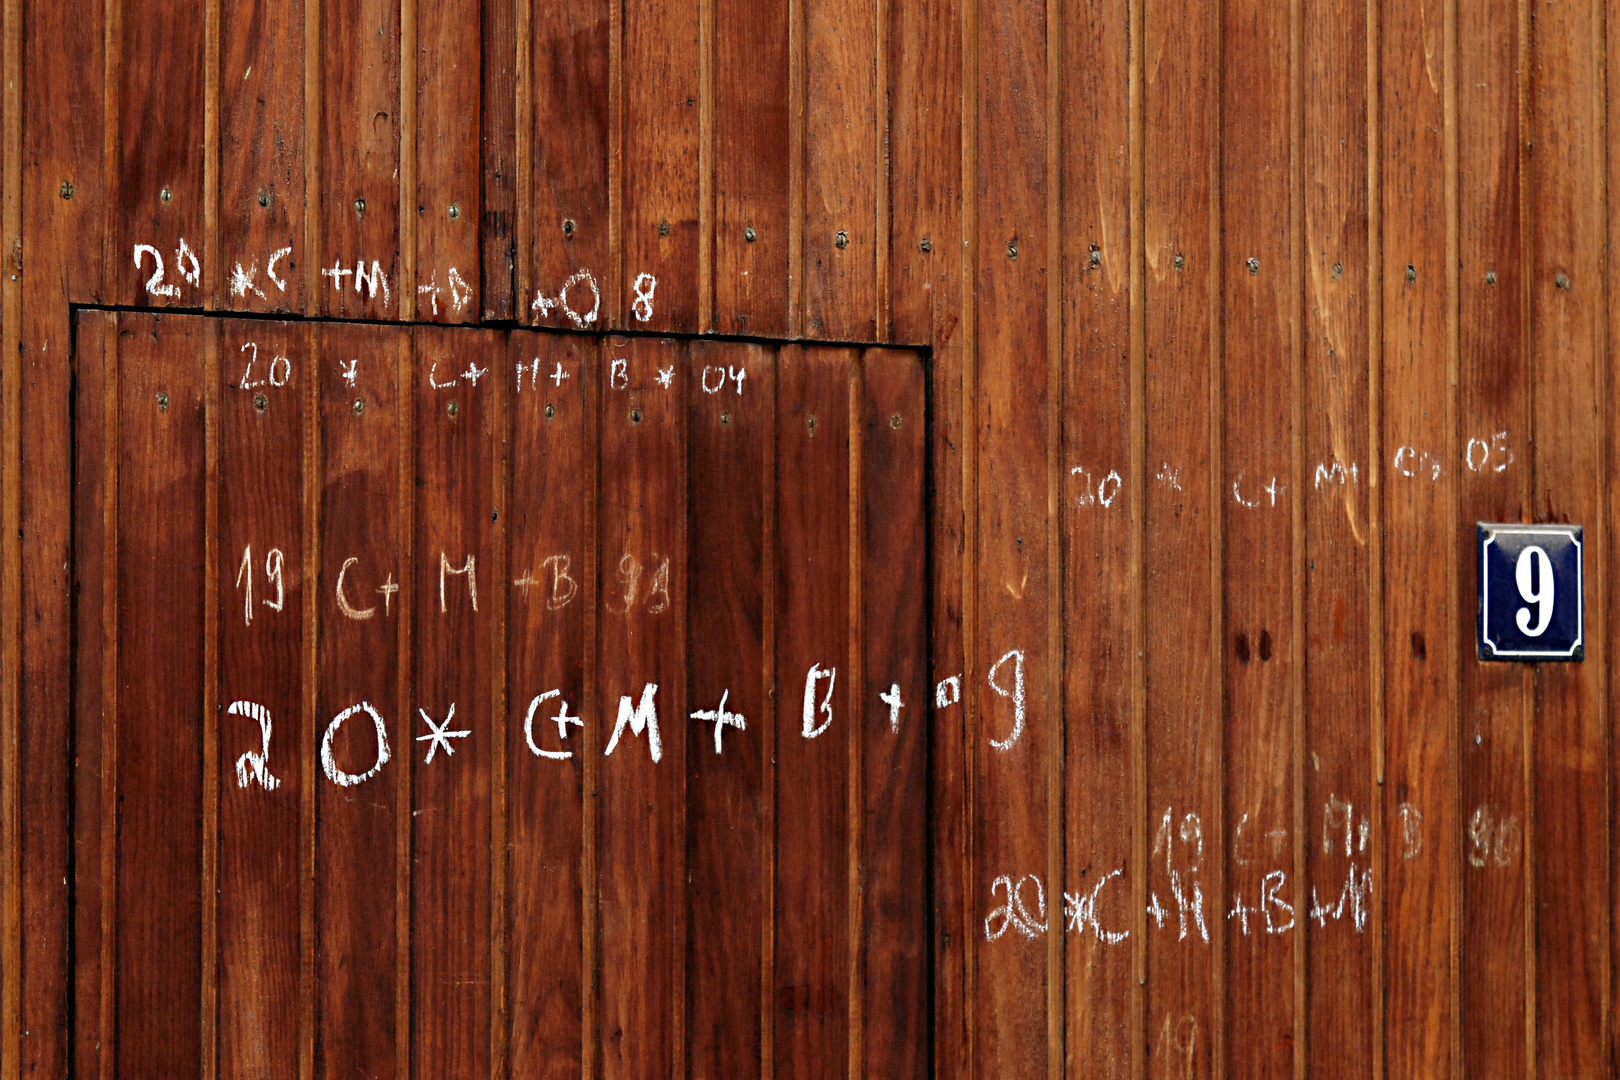 20 *C +M +B +08
20 * C+ M+ B * 04
20 * C+ M+ 05
9
19 C+ M +B 98
20* C+M+ B + 09
19 C+ M+ B 96
20 *C +M +B +11
19